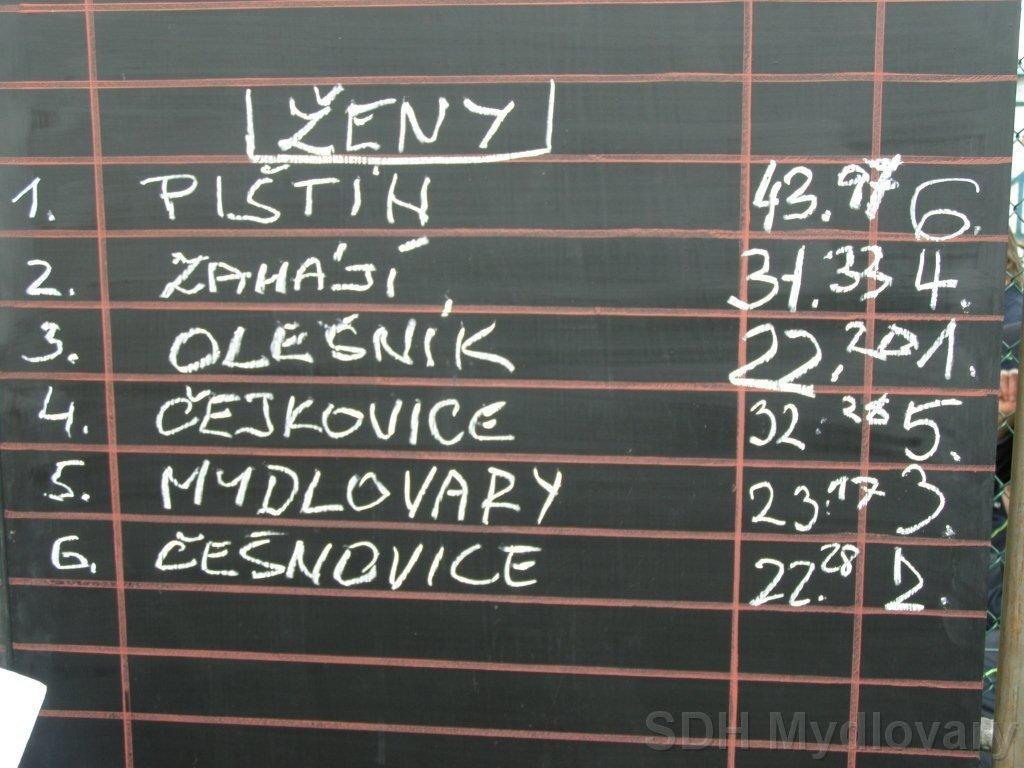 ŽENY
1. PIŠTÍN 43.97 6.
2. ZAHÁJÍ 31.33 4.
3. OLEŠNÍK 22.20 1.
4. ČEJKOVICE 32.28 5.
5. MYDLOVARY 23.17 3.
6. ČEŠNOVICE 22.28 2.
SDH Mydlovary